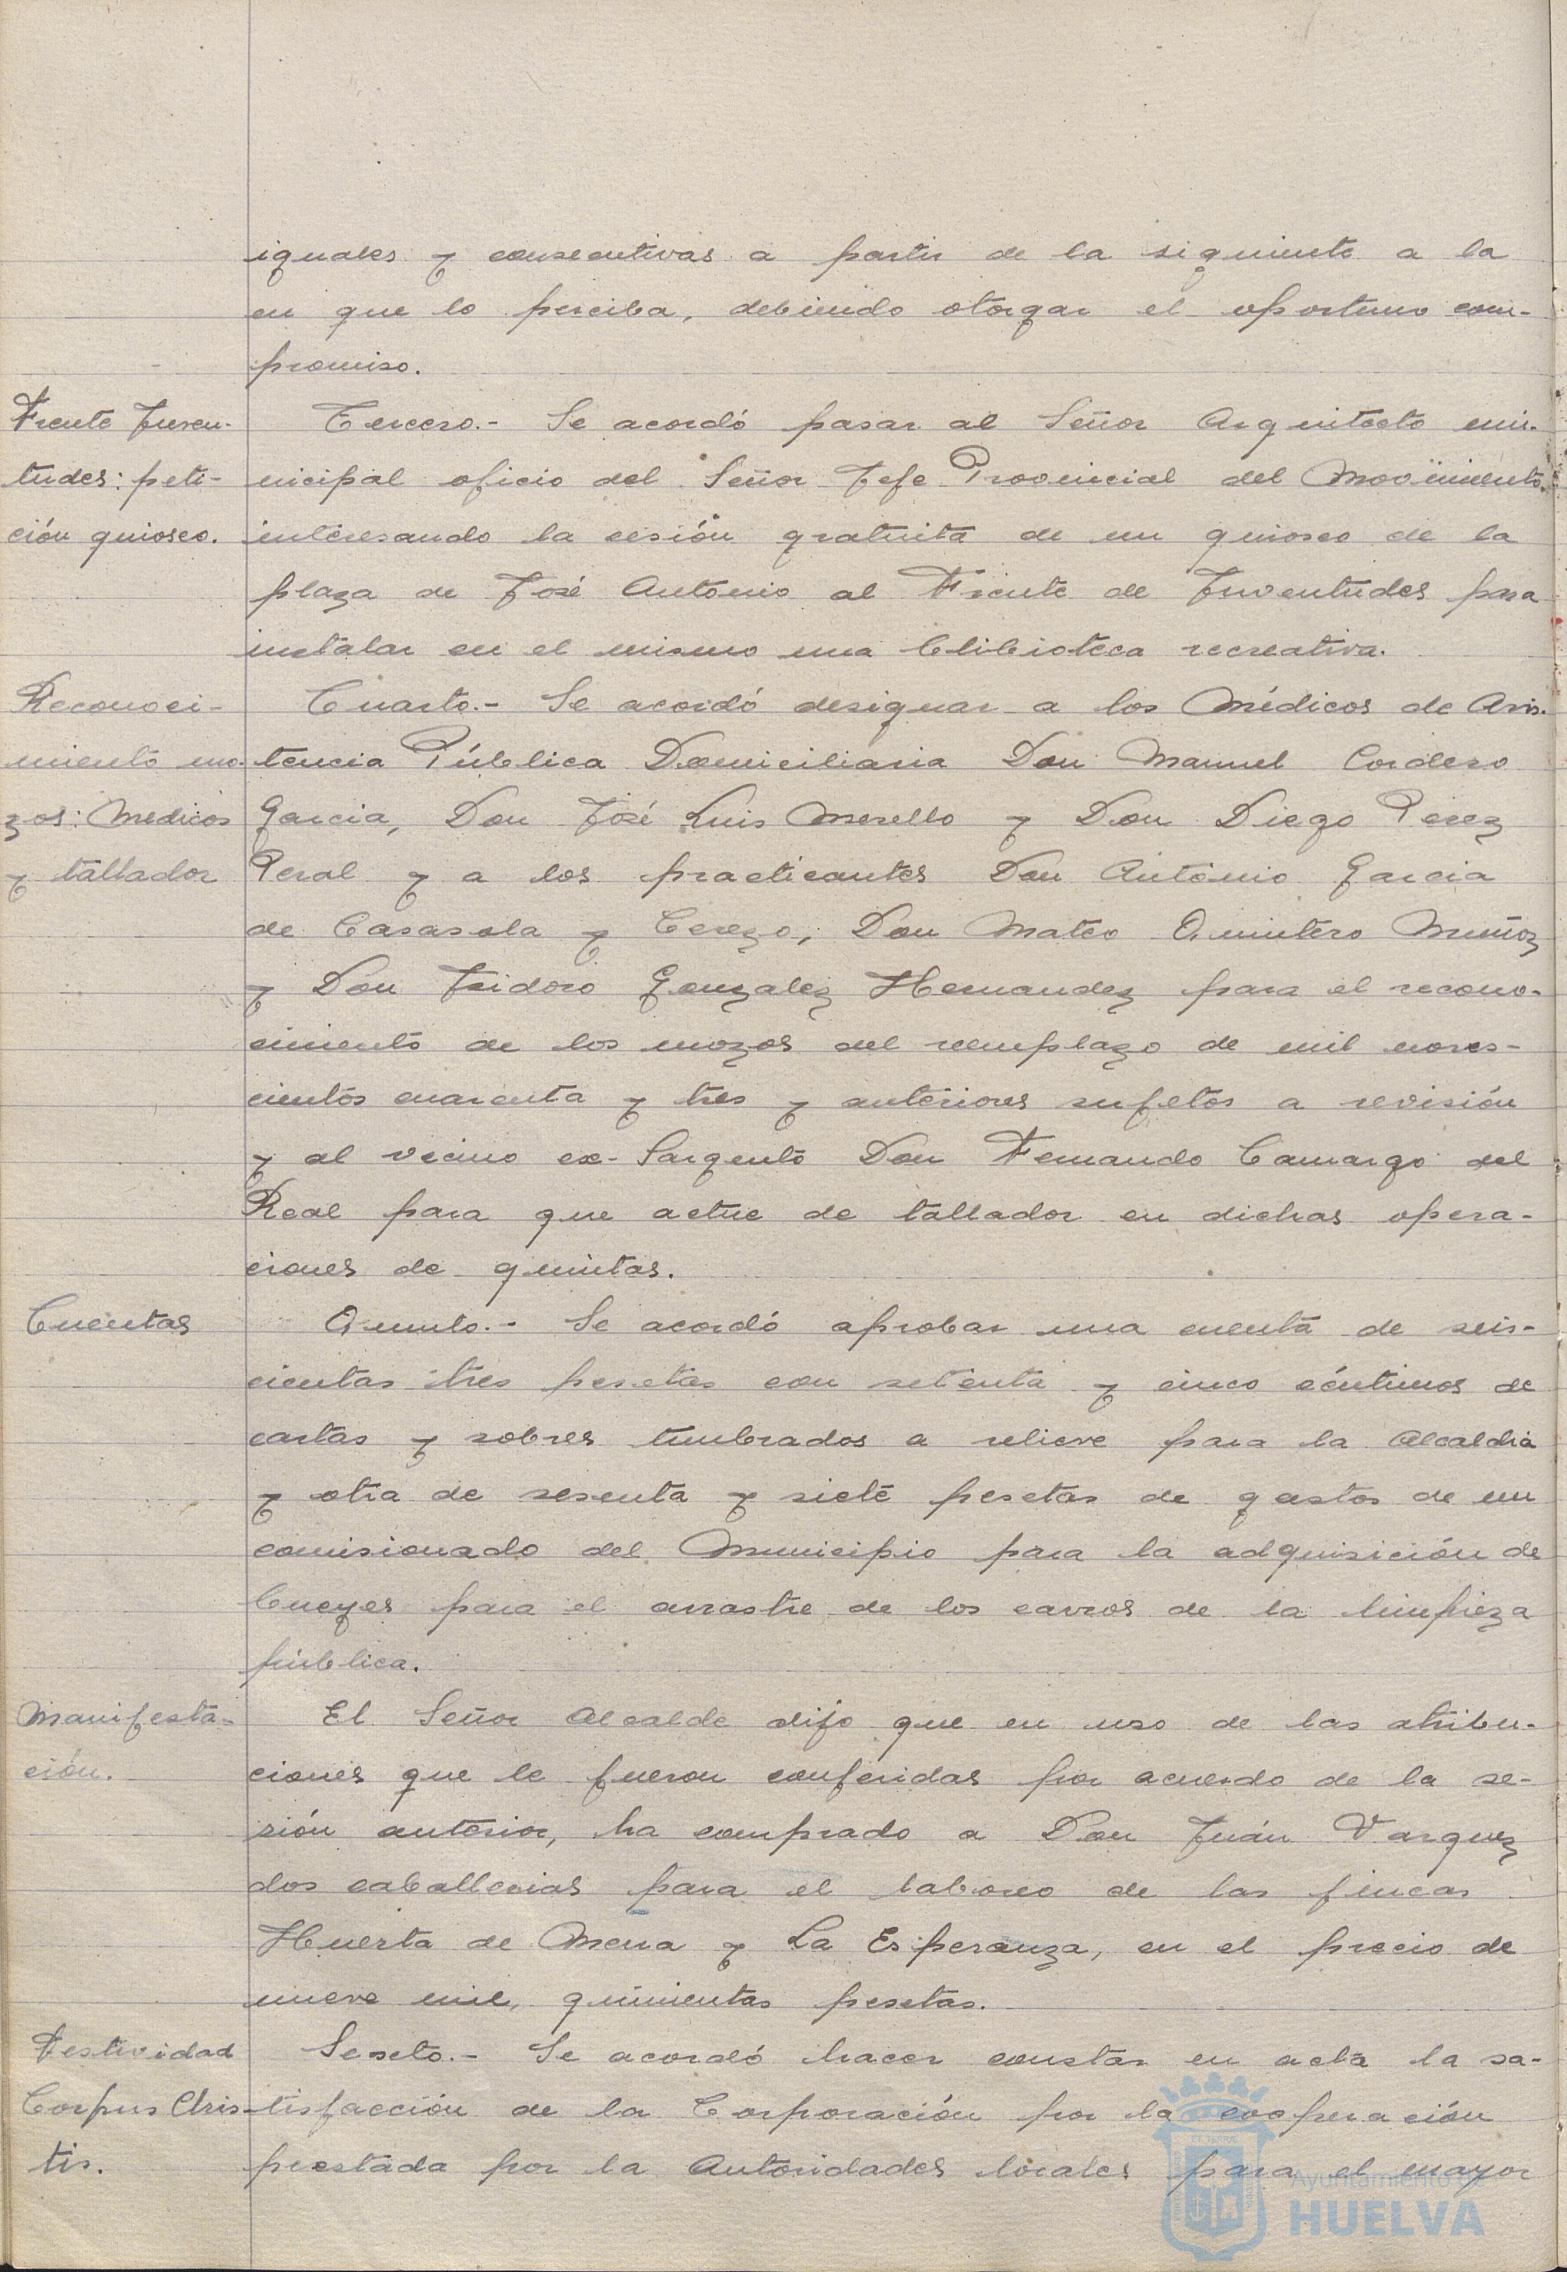 iguales y consecutivas a partir de la siguiente a la
en que lo perciba, debiendo otorgar el oportuno com-
promiso.
Frente Juven-
tudes: peti-
ción quiosco.
Tercero.- Se acordó pasar al Señor Arquitecto mu-
nicipal oficio del Señor Jefe Provincial del Movimiento
interesando la cesión gratuita de un quiosco de la
plaza de José Antonio al Frente de Juventudes para
instalar en el mismo una blibioteca recreativa.
Reconoci-
miento mo-
zos: Medicos
y tallador
Cuarto.- Se acordó designar a los Médicos de Asis-
tencia Pública Domiciliaria Don Manuel Cordero
Garcia, Don José Luis Morello y Don Diego Perez
Peral y a los practicantes Don Antonio Garcia
de Casasola y Cerezo, Don Mateo Quintero Muñoz
y Don Isidoro Gonzalez Hernandez para el recono-
cimiento de los mozos del reemplazo de mil noves-
cientos cuarenta y tres y anteriores sujetos a revisión
y al vecino ex-Sargento Don Fernando Camargo del
Real para que actue de tallador en dichas opera-
ciones de quintas.
Cuentas
Quinto.- Se acordó aprobar una cuenta de seis-
cientas tres pesetas con setenta y cinco céntimos de
cartas y sobres timbrados a relieve para la Alcaldia
y otra de sesenta y siete pesetas de gastos de un
comisionado del Municipio para la adquisición de
bueyes para el arrastre de los carros de la limpieza
pública.
Manifesta-
ción.
El Señor Alcalde dijo que en uso de las atribu-
ciones que le fueron conferidas por acuerdo de la se-
sión anterior, ha comprado a Don Juán Vazquez
dos caballerias para el laboreo de las fincas
Huerta de Mena y La Esperanza, en el precio de
nueve mil, quinientas pesetas.
Festividad
Corpus Chris-
tis.
Sexto.- Se acordó hacer constar en acta la sa-
tisfacción de la Corporación por la cooperación
prestada por la Autoridades locales para el mayor
Ayuntamiento de
HUELVA